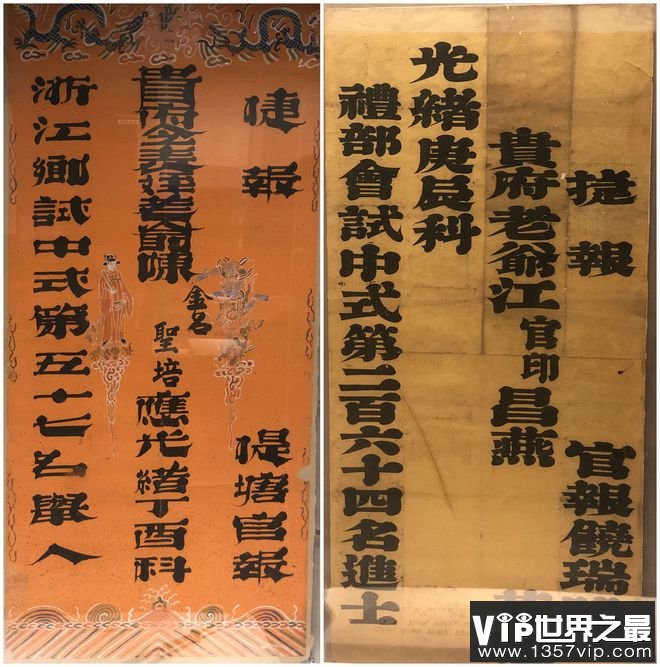 捷報
塘官報
貴府令老爺陳
金名
聖培應光緒丁酉科
浙江鄉試中式第五十七名舉人
捷報
官報饒瑞
貴府老爺江官印昌燕
光緒庚辰科
禮部會試中式第二百六十四名進士
VIP世界之最
www.1357vip.com